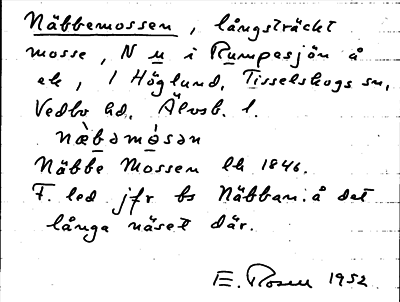 Näbbemossen, långsträckt
mosse, N u i Rumpesjön å
ek, 1 Höglund, Tisselskogs sn,
Vedbo hd, Älvsb. l.
næ̀bəmò̱sən
Näbbe Mossen lk 1846.
F. led jfr bs Näbban: å det
långa näset där.
E. Rosen 1952